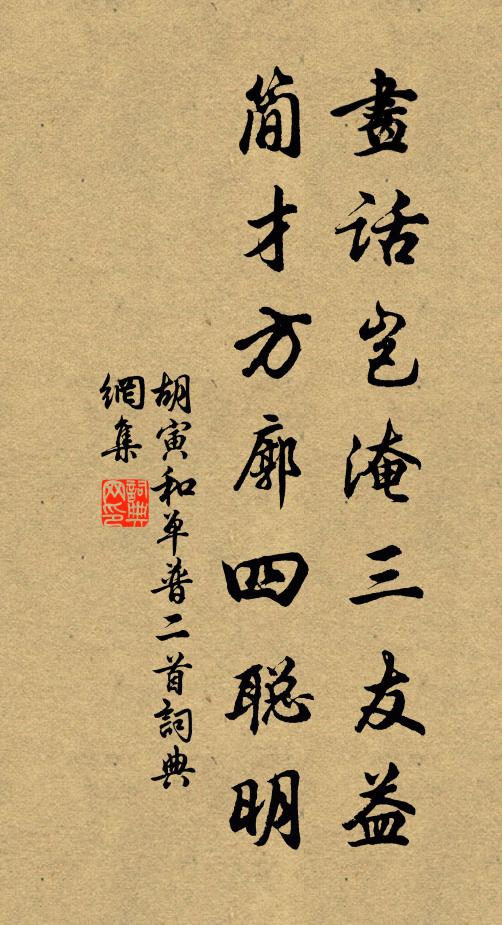 畫話岂淹三友益
简才方廓四聪明
胡寅和单普二首詞典
網集
詞典
网印